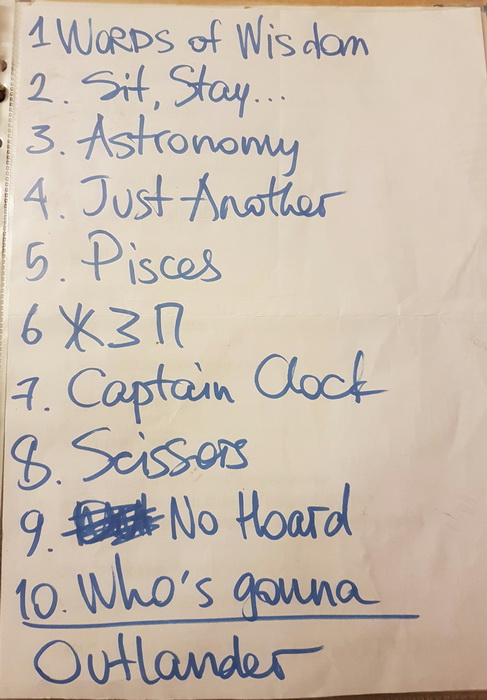 1 WORDS of Wisdom
2. Sit, Stay...
3. Astronomy
4. Just Another
5. Pisces
6 ЖЗП
7. Captain Clock
8. Scissors
9. No Hoard
10. Who's gonna
Outlander